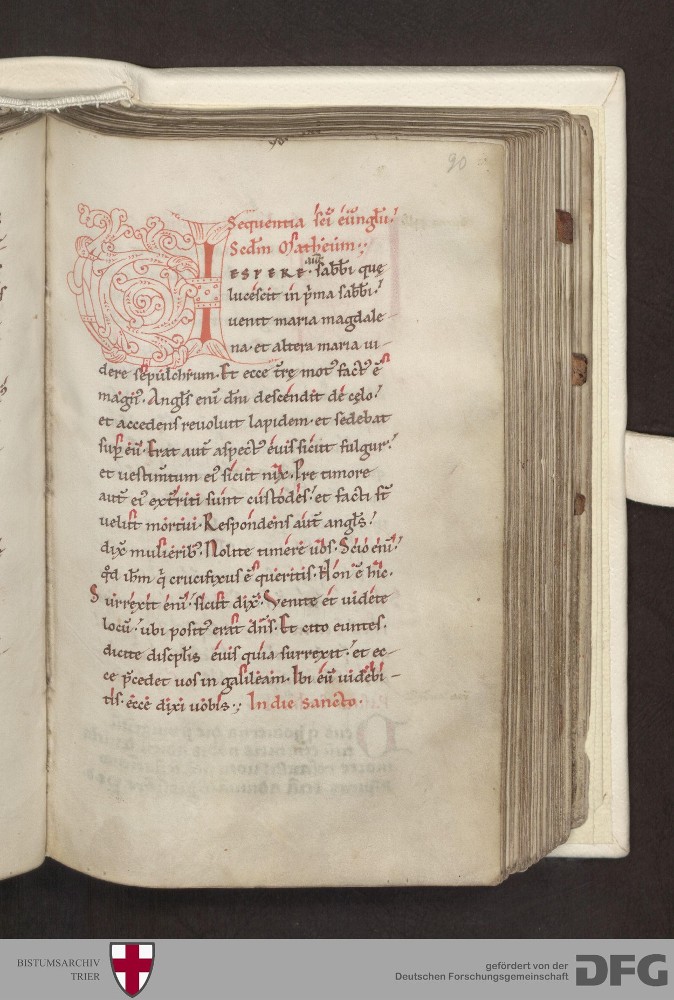 90
Sequentia scı̄ euꝯglıı̄
Secdm Matheum
VESPERE aut sabbi quę
lucescit in p̄ma sabbi
uenit maria magdale-
na · et altera maria ui-
dere sepulchrum · Et ecce trę mot' fact' ē
magn' · Angls enī dn̄i descendit de cęlo
et accedens reuoluit lapidem · et sedebat
sup eū · Erat aut̄ aspect' eius sicut fulgur
et uestimtum ei' sicut nix · Pre timore
aut̄ ei' extriti sunt custodes · et facti sт̄
uelut mortui · Respondens aut̄ angls
dix̄ mulierib' · Nolite timere uos · Scio enī
qđ ihm̄ q̇ crucifixus ē queritis · Non ē hic ·
Surrexit enī sicut dix̄ · Venite et uidete
locū · ubi posit' erat dn̄s · Et cito euntes ·
dicite discplis eius quia surrexit · et ec-
ce p̄cedet uos in galileam · Ibi eū uidebi-
tis · ecce dixi uobis · In die sancto ·
BISTUMSARCHIV
TRIER
gefördert von der
Deutschen Forschungsgemeinschaft
DFG